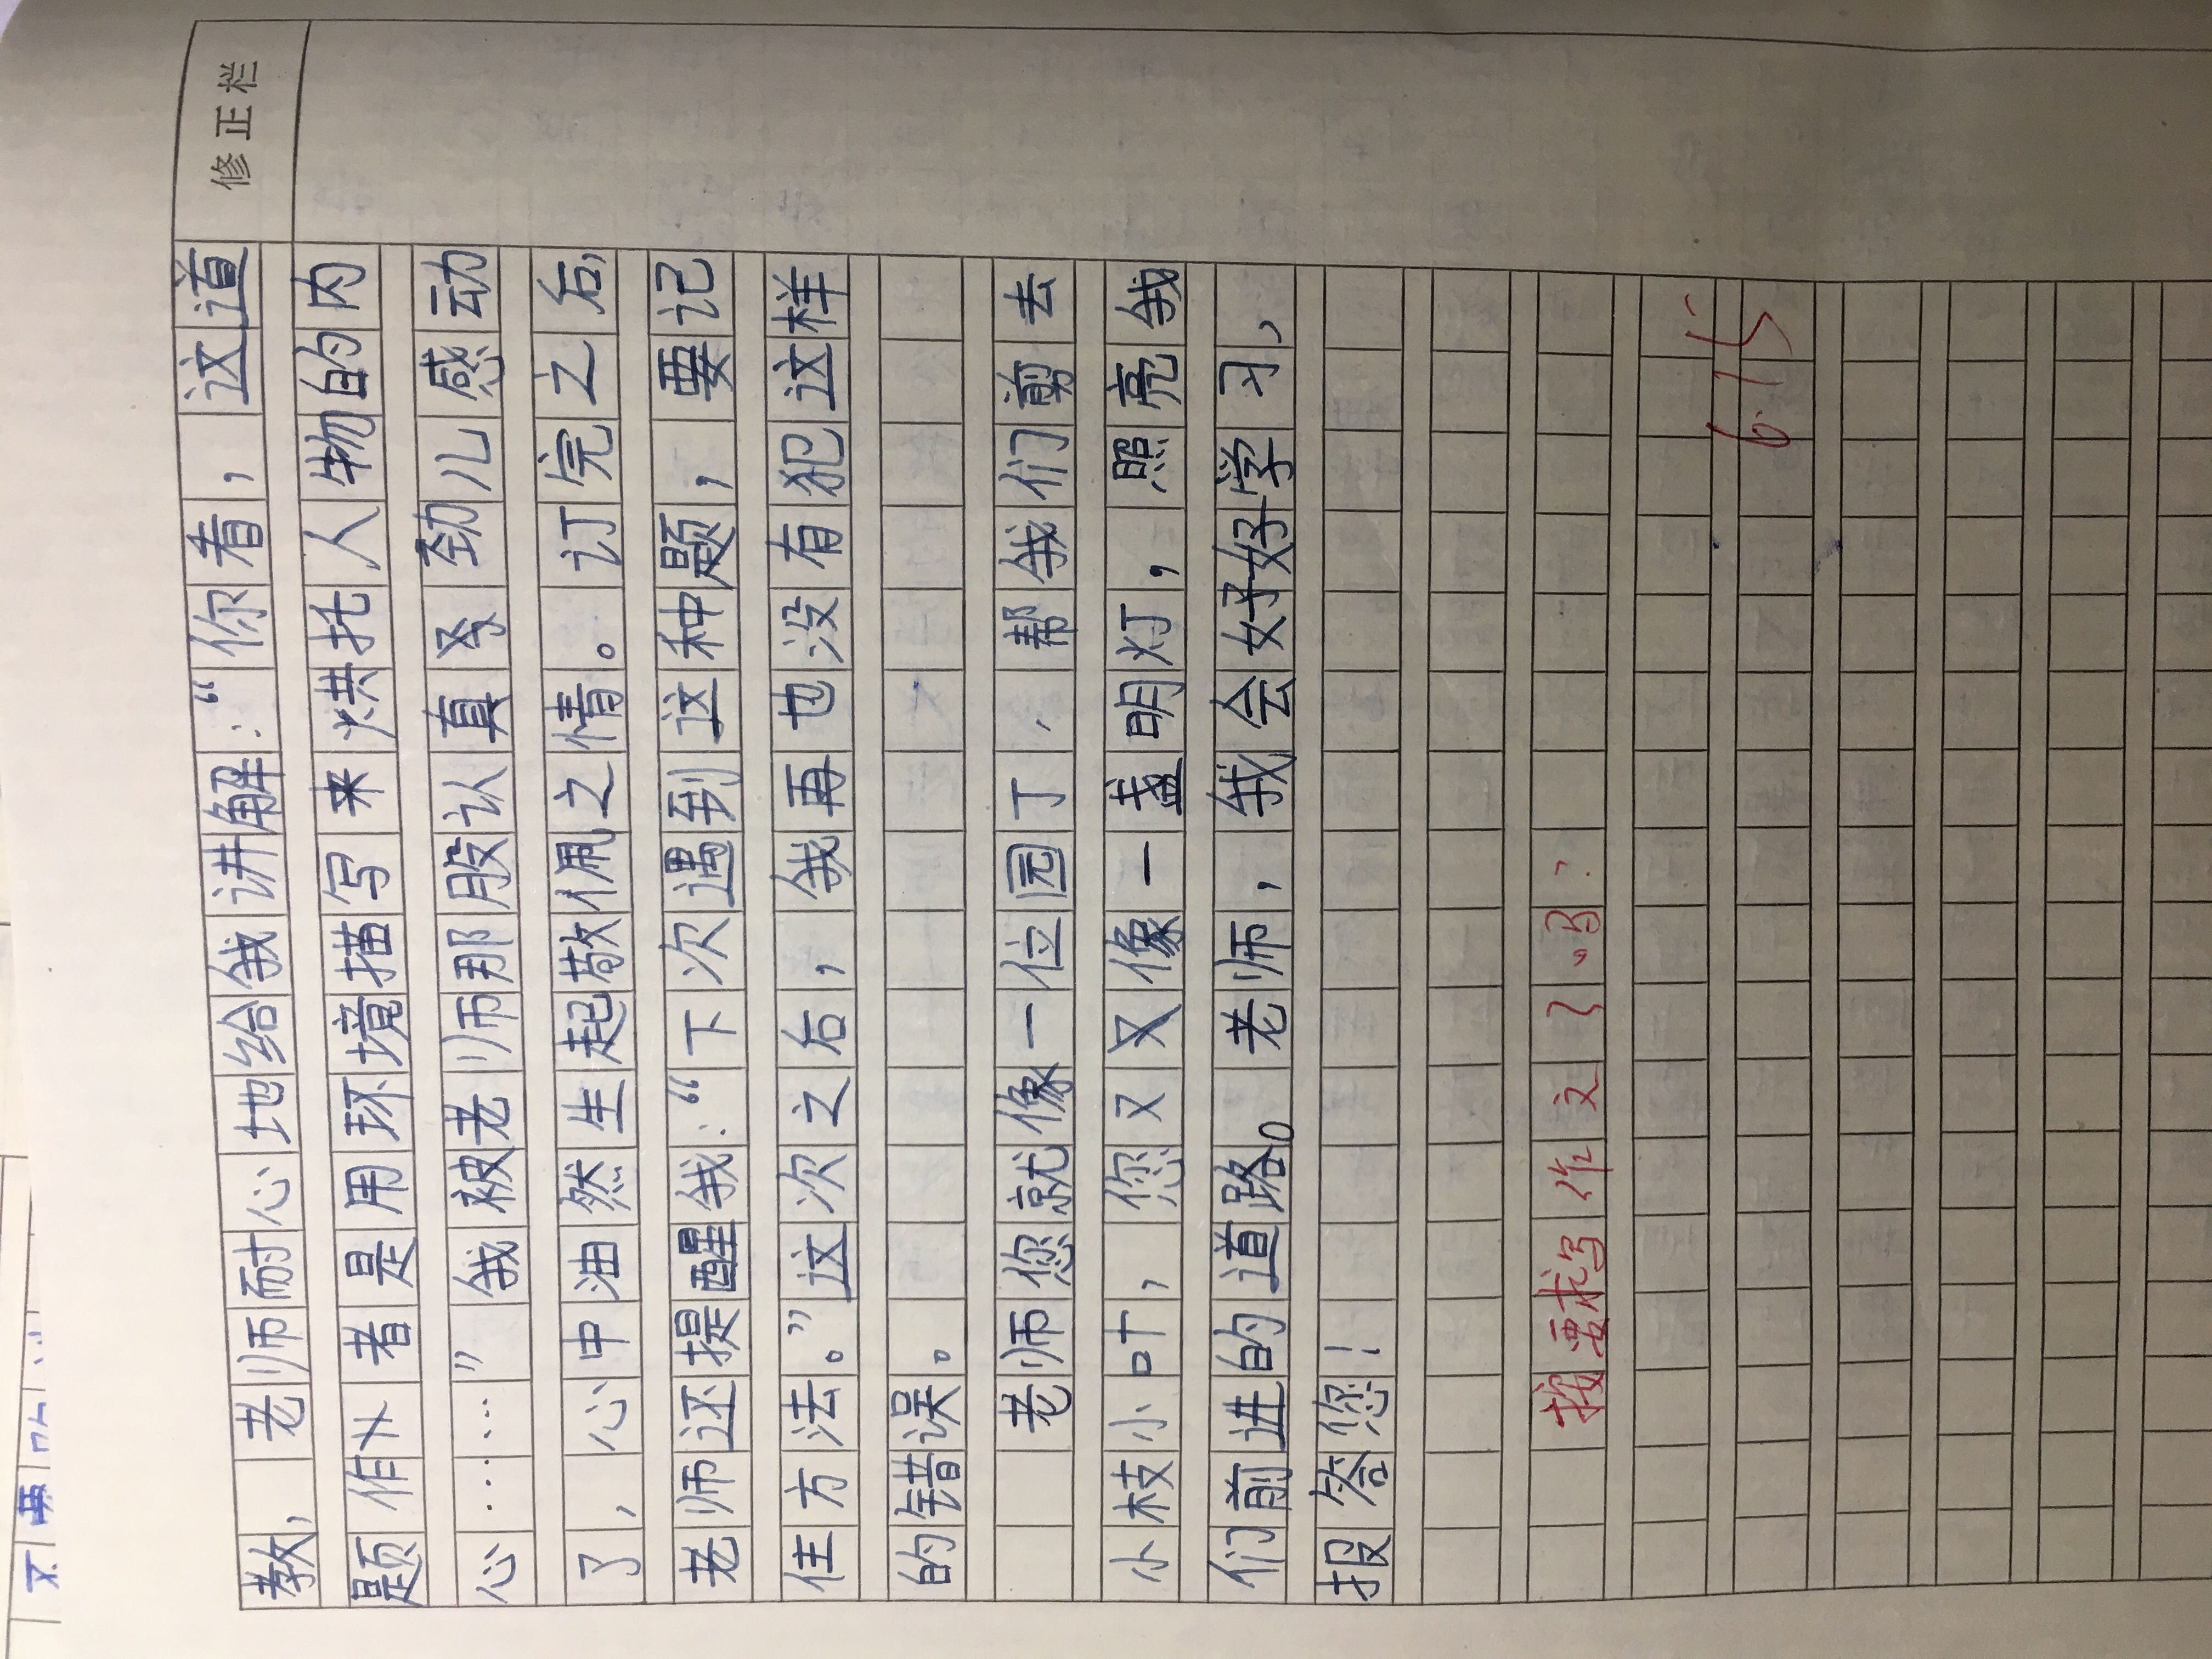 修正栏
教，老师耐心地给我讲解：“你看，这道
题作者是用环境描写来烘托人物的内
心……”我被老师那股认真劲儿感动
了，心中油然生起敬佩之情。订完之后，
老师还提醒我：“下次遇到这种题，要记
住方法。”这次之后，我再也没有犯这样
的错误。
老师您就像一位园丁，帮我们剪去
小枝小叶，您又又像一盏明灯，照亮我
们前进的道路。老师，我会好好学习，
报答您！
按要求写作文了吗？
6.15